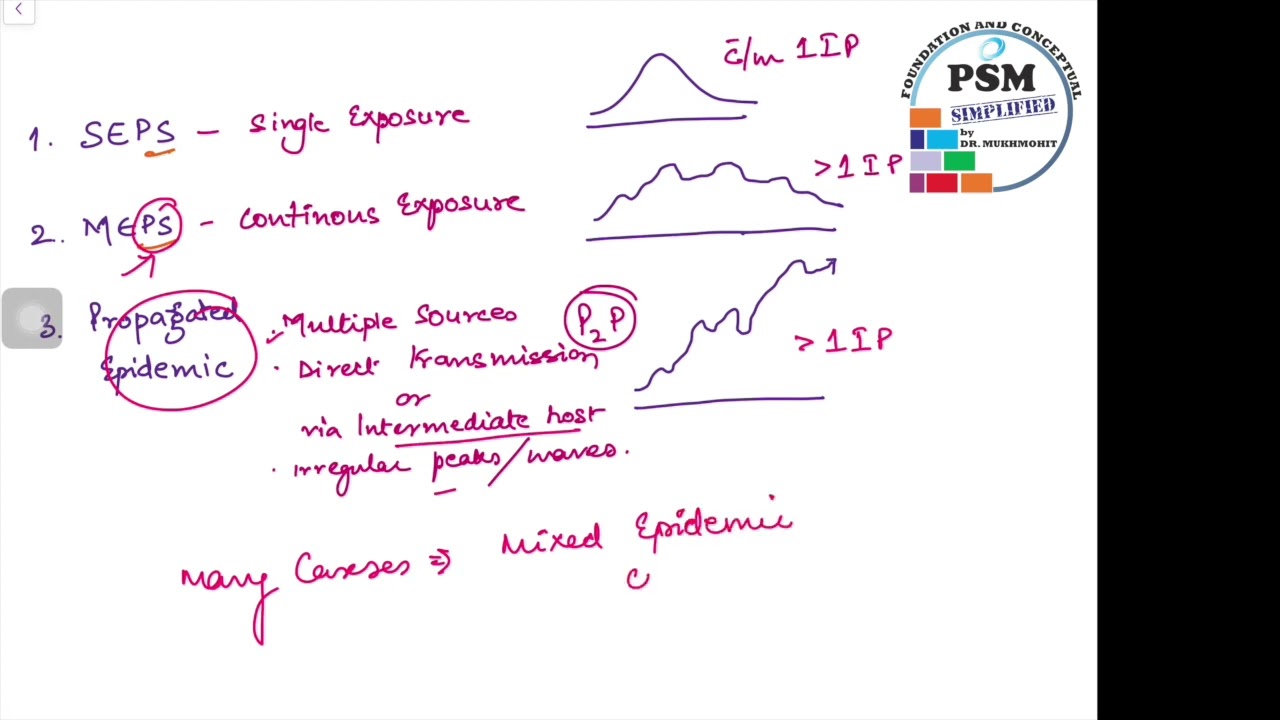 FOUNDATION AND CONCEPTUAL
PSM
SIMPLIFIED
by
DR. MUKHMOHIT
1. SEPS - Single Exposure
c̄/m 1 IP
2. MEPS - Continous Exposure
>1 IP
3. Propagated Epidemic
. Multiple Sources
P2P
. Direct transmission
or
via Intermediate host
. Irregular peaks/waves.
> 1 IP
Many Caseses ⇒ Mixed Epidemic
C